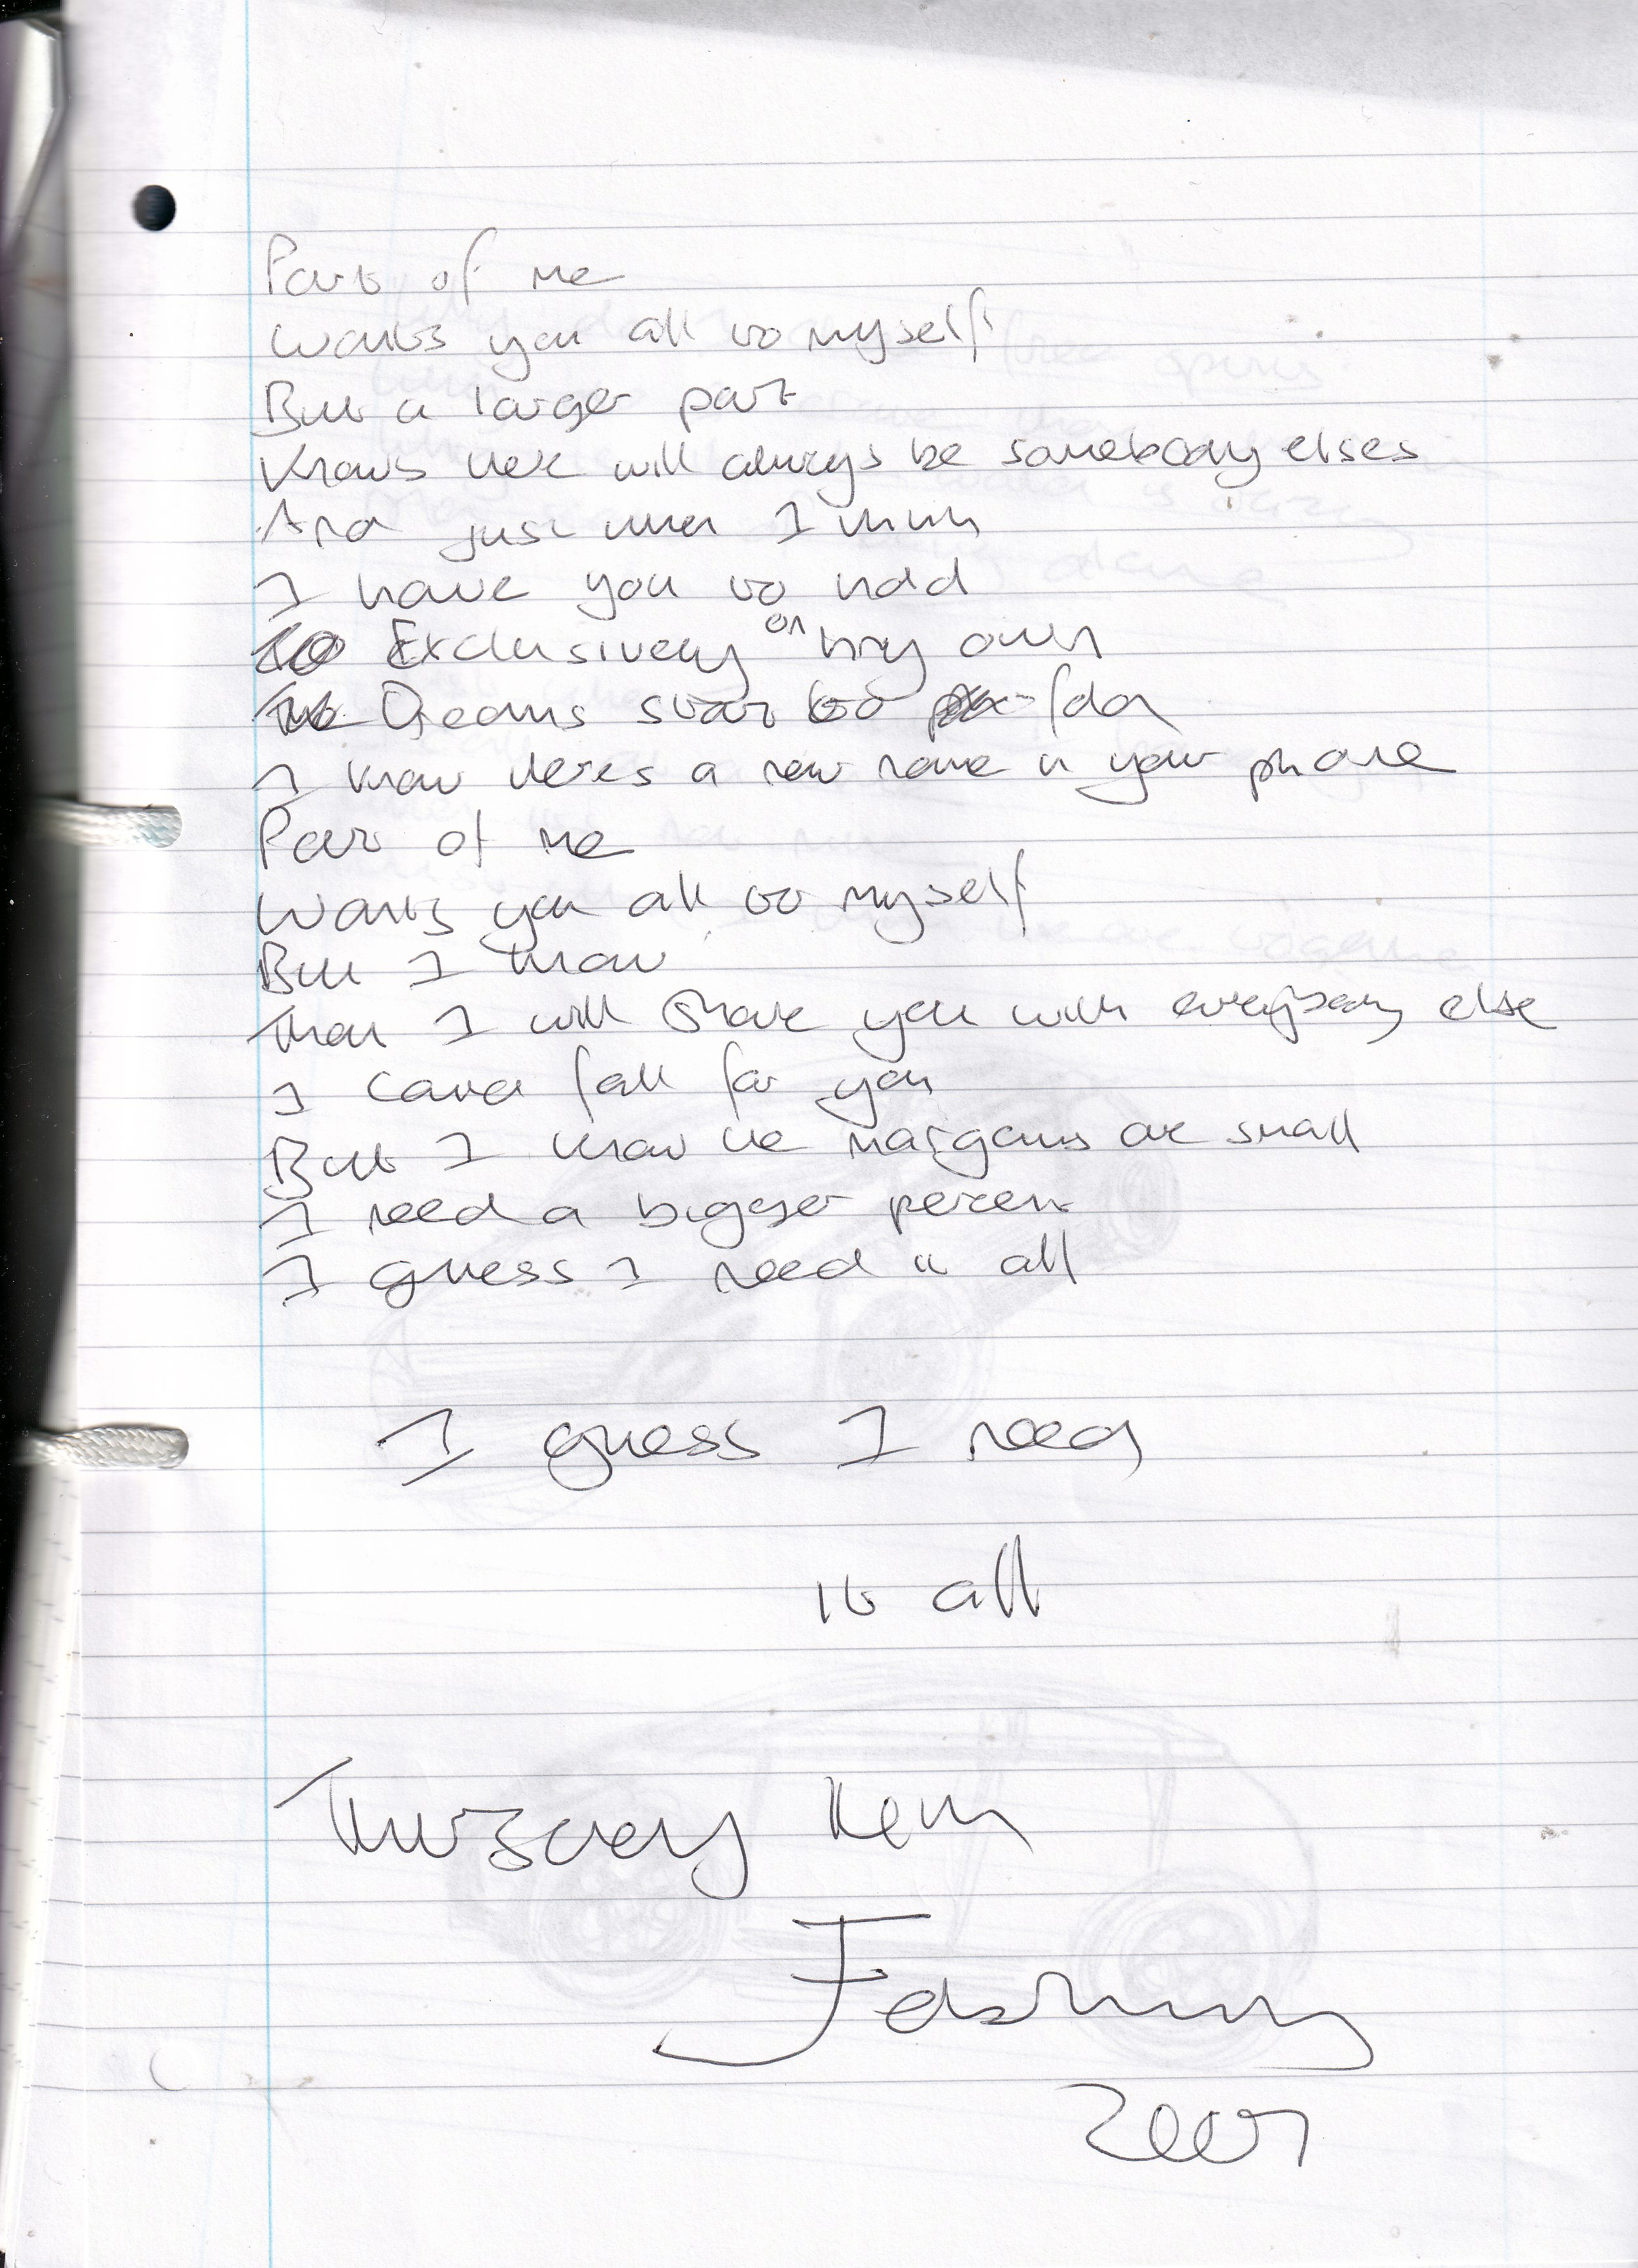 Part of me
Wants you all to myself
But a larger part
Knows there will always be somebody elses
And just when I think
I have you to hold
Exclusively on my own
Dreams start to fold
I know theres a new name in your phone
Part of me
Wants you all to myself
But I know
That I will share you with everybody else
I could fall for you
But I know the margains are small
I need a bigger percent
I guess I need it all
I guess I need
it all
Thursday
2009